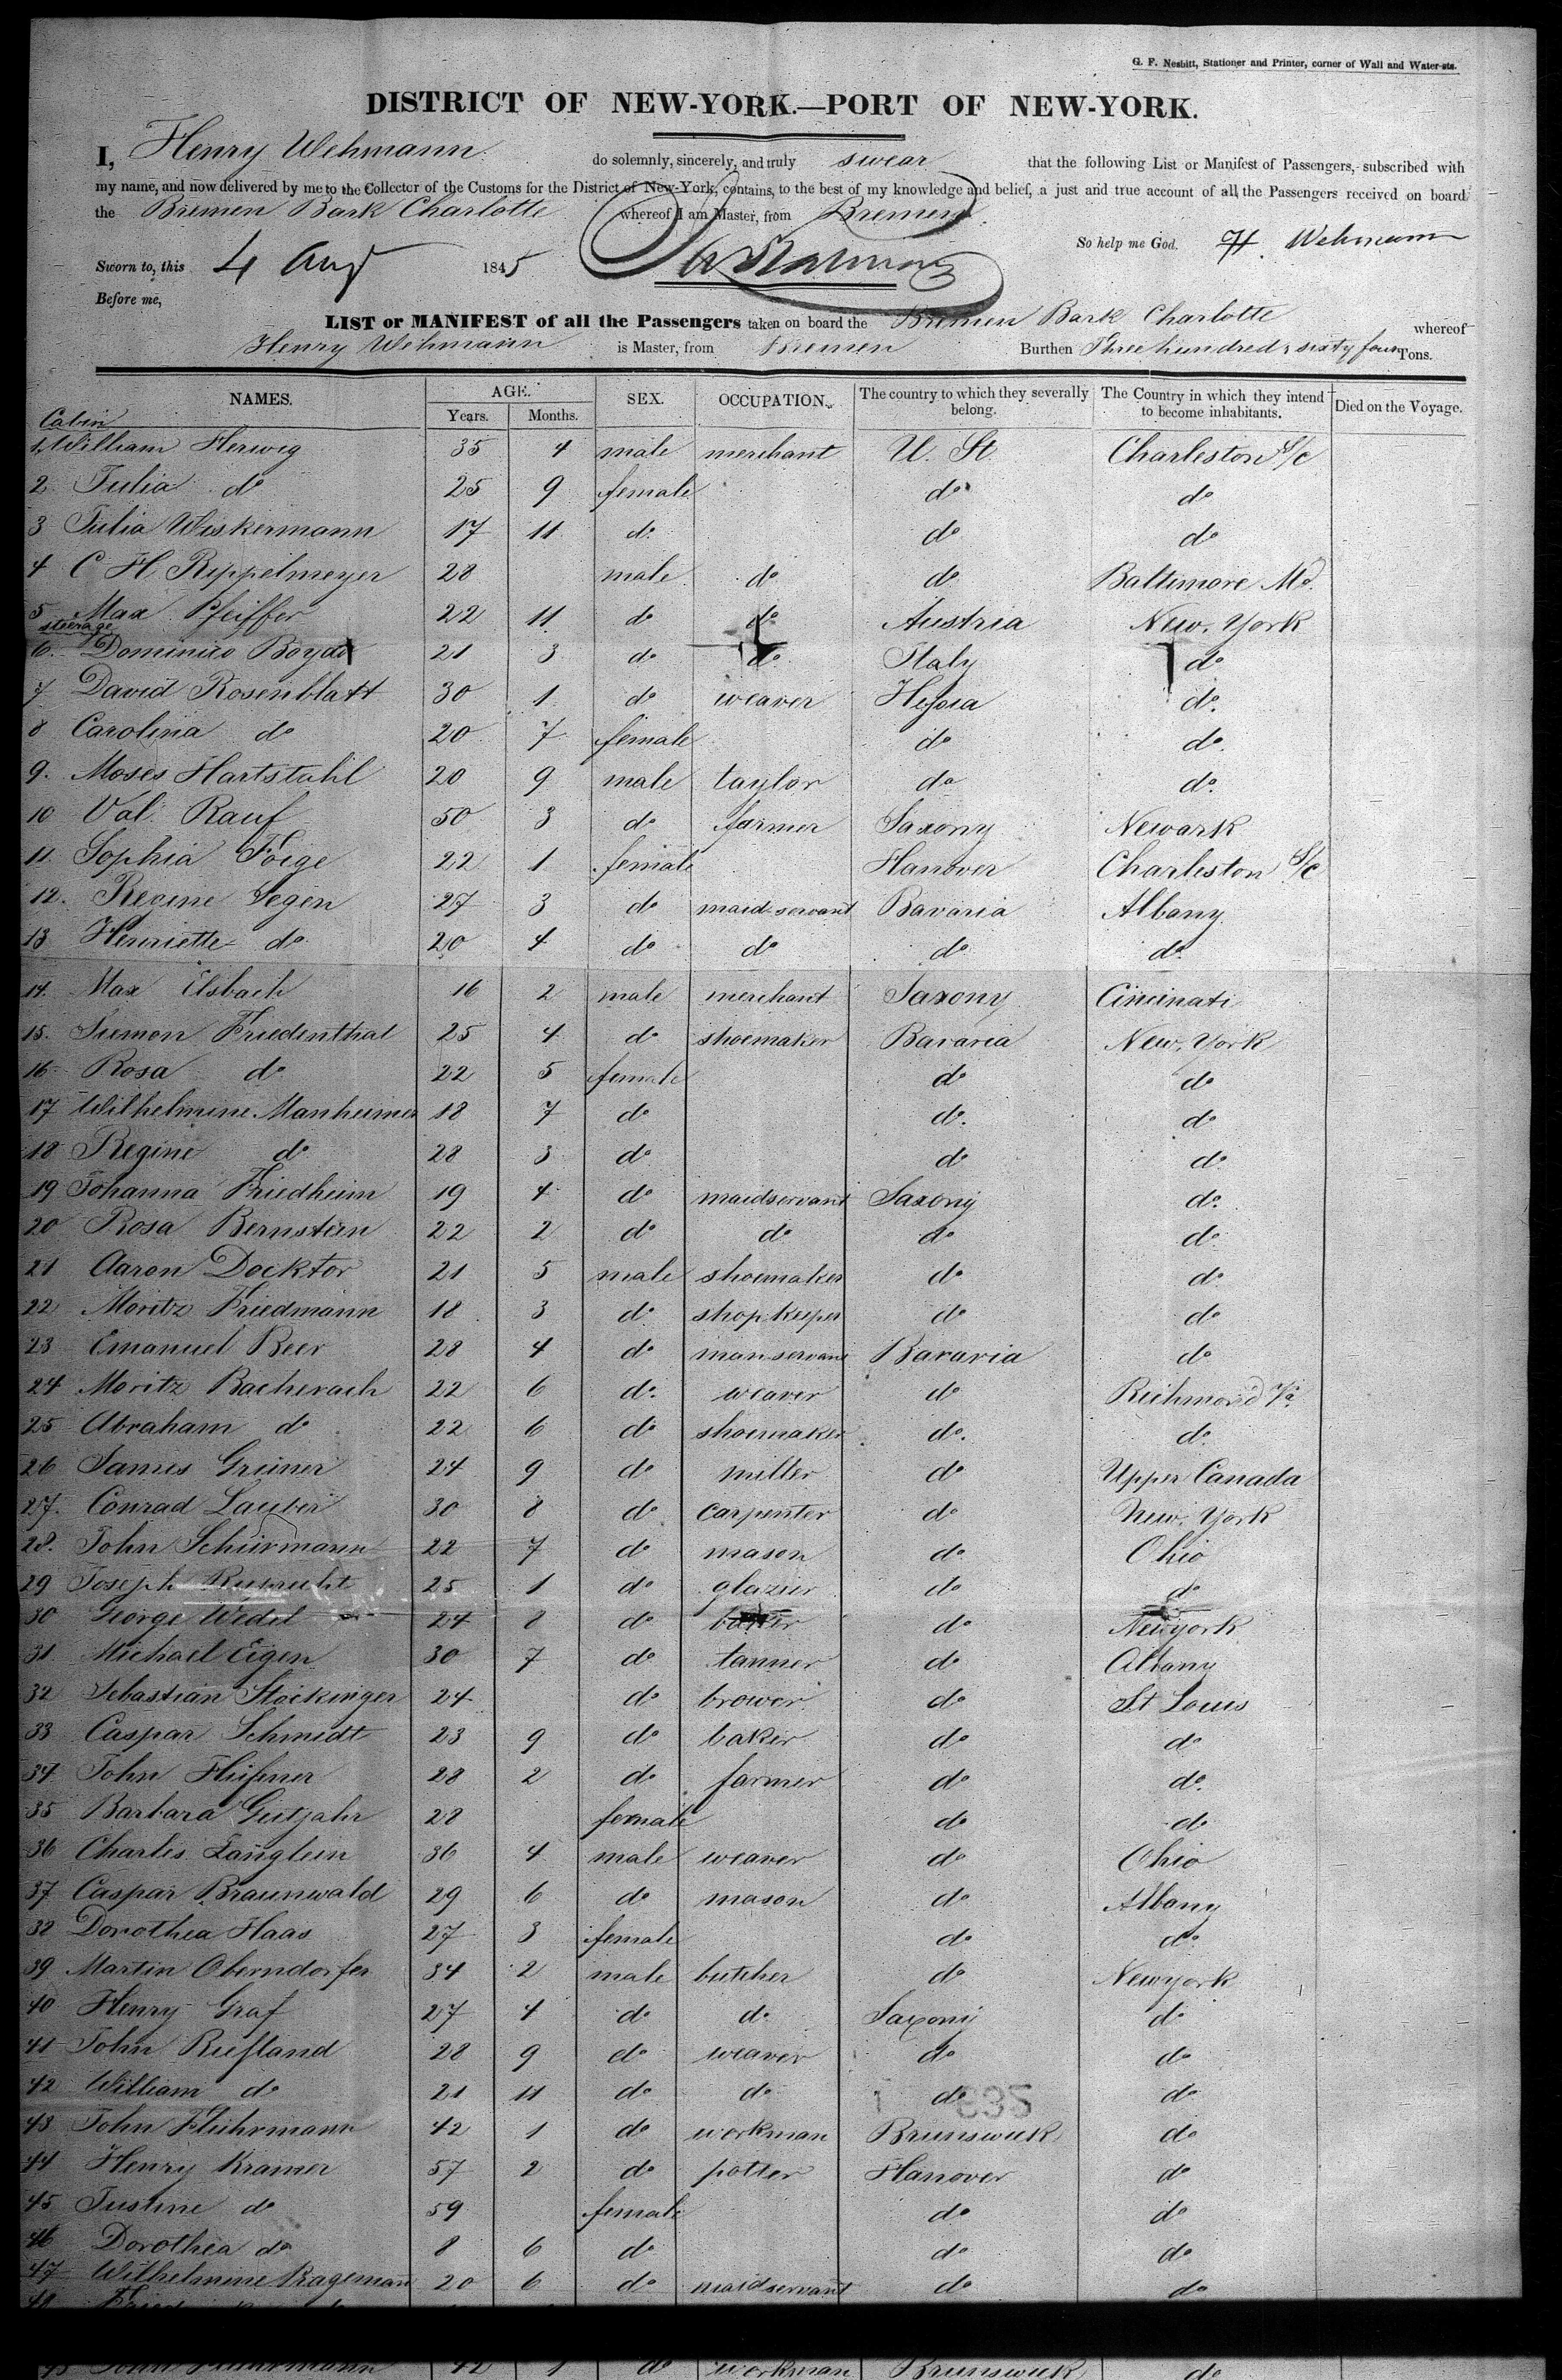 G. F. Nesbitt, Stationer and Printer, corner of Wall and Water-sts.
DISTRICT OF NEW-YORK.—PORT OF NEW-YORK.
I, Henry Wehmann do solemnly, sincerely, and truly swear that the following List or Manifest of Passengers, subscribed with
my name, and now delivered by me to the Collector of the Customs for the District of New-York, contains, to the best of my knowledge and belief, a just and true account of all the Passengers received on board
the Bremen Bark Charlotte whereof I am Master, from Bremen.
So help me God. H. Wehmann
Sworn to, this 4 Aug 1845
Before me,
LIST or MANIFEST of all the Passengers taken on board the Bremen Bark Charlotte whereof
Henry Wehmann is Master, from Bremen Burthen Three hundred & sixty four Tons.
NAMES. AGE. Years. Months. SEX. OCCUPATION. The country to which they severally belong. The Country in which they intend to become inhabitants. Died on the Voyage.
Cabin
1. William Herweg 35 4 male merchant U. St. Charleston S/C
2. Julia do 25 9 female do do
3 Julia Wiskermann 17 11 do do do
4 C H Reppelmeyer 28 male do do Baltimore Md.
5 Max Pfeiffer 22 11 do do Austria New-York
steerage
6. Dominico 21 3 do do Italy do
7 David Rosenblatt 30 1 do weaver Hessia do.
8 Carolina do 20 7 female do do.
9. Moses Hartstuhl 20 9 male taylor do do.
10 Val. Rauf 50 3 do farmer Saxony Newark
11 Sophia Foige 22 1 female Hanover Charleston S/C
12. Regine Segen 27 3 do maid-servant Bavaria Albany
13 Henriette do 20 4 do do do do
14. Max Elsbach 16 2 male merchant Saxony Cincinati
15. Siemon Friedenthal 25 4 do shoemaker Bavaria New-York
16 Rosa do 22 5 female do do
17 Wilhelmine Manheimer 18 7 do do. do
18 Regine do 28 3 do do do.
19 Johanna Friedheim 19 4 do maidservant Saxony do.
20 Rosa Bernstein 22 2 do do do do.
21 Aaron Docktor 21 5 male shoemaker do do.
22 Moritz Friedmann 18 3 do shopkeeper do do
23 Emanuel Beer 28 4 do manservant Bavaria do
24 Moritz Bacherach 22 6 do. weaver do Richmond Va
25 Abraham do 22 6 do shoemaker do. do.
26 James Greiner 24 9 do miller do Upper Canada
27. Conrad Lauber 30 8 do carpenter do New-York
28. John Schürmann 22 7 do mason do Ohio
29 Joseph Ruprecht 25 1 do glazier do do
30 George Wedel 24 8 do baker do Newyork
31 Michael Eigen 30 7 do tanner do Albany
32 Sebastian Stöckinger 24 do brower do St Louis
33 Caspar Schmidt 23 9 do baker do do
34 John 28 2 do farmer do do.
35 Barbara Gutjahr 28 female do do
36 Charles Länglein 36 4 male weaver do Ohio
37 Caspar Braunwald 29 6 do mason do Albany
38 Dorothea Haas 27 3 female do do.
39 Martin Oberndorfer 34 2 male butcher do Newyork
40 Henry Graf 27 4 do do. Saxony do
41 John Ruffland 28 9 do weaver do do
42 William do 21 11 do do do do
43 John Fluhrmann 42 1 do workman Brunswick do
44 Henry Kramer 57 2 do potter Hanover do
45 Justine do 59 female do do
46 Dorothea do 8 6 do do do
47 Wilhelmine Bageman 20 6 do maidservant do do
48
43 John Fluhrmann 42 1 do workman Brunswick do